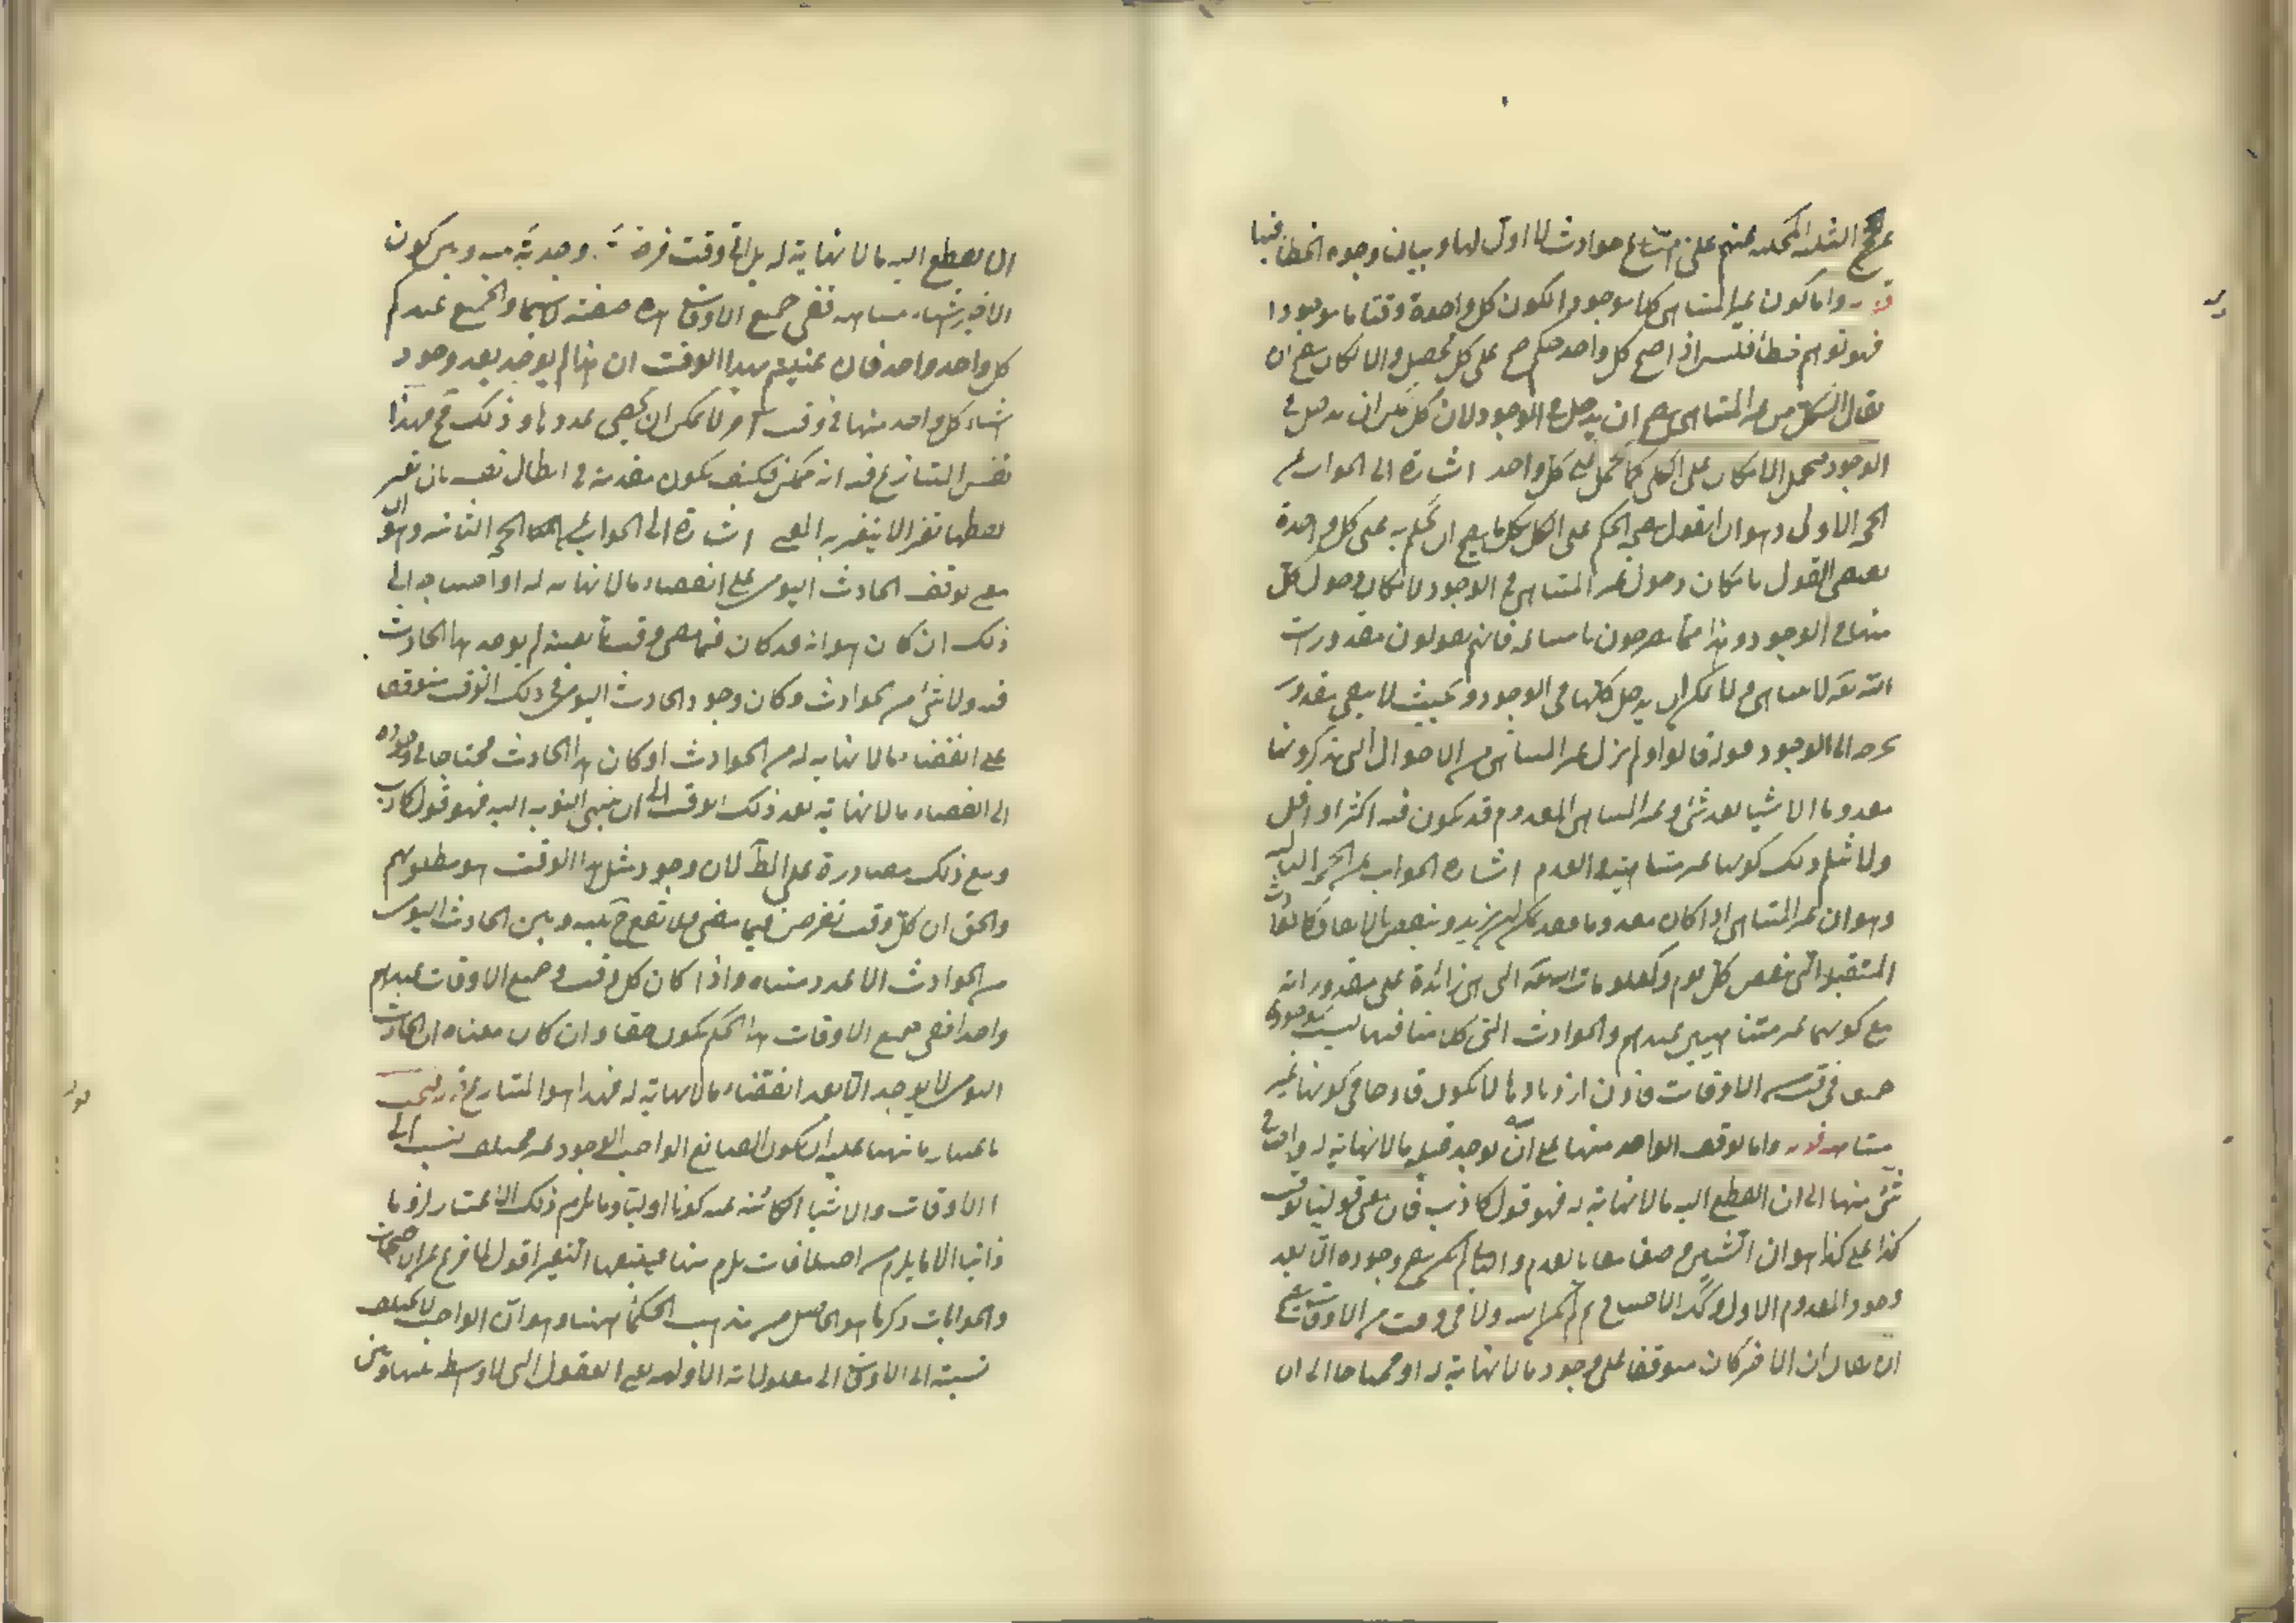 حجج الثلثة المحكية عنهم على امتناع حوادث لا اول لها وبيان وجوه الخطا فيها
قوله واما كون غير المتناهى كلا موجودا لكون كل واحدة وقتا ما موجودا
فهو توهم خطأ فليس اذا صح كل واحد حكم صح على كل محصل والا لكان يصح ان
يقال الكل من غير المتناهى يصح ان يدخل فى الوجود لان كل يمكن ان يدخل فى
الوجود فيحمل الامكان على الكل كما يحمل على كل واحد اشارة الى الجواب عن
الحجة الاولى وهو ان القول بصحة الحكم على الكل بكل ما يصح ان يحكم به على كل واحدة
يقتضى القول بامكان دخول غير المتناهى فى الوجود لامكان دخول كل
منها فى الوجود وهذا مما يصرحون بامتناعه فانهم يقولون مقدورات
الله تعه لا متناهى لا يمكن ان يدخل كلها فى الوجود وبحيث لا يبقى مقدور
يخرج الى الوجود قوله قالوا ولم يزل غير المتناهى من الاحوال التى يذكرونها
معدوما الا شيئا بعد شئ وغير المتناهى المعدوم قد يكون فيه اكثر او اقل
ولا يثلم ذلك كونها غير متناهية فى العدم اشارة الجواب عن الحجة الثالثة
وهو ان غير المتناهى اذا كان معدوما فقد يمكن ان يزيد وينقص كالحوادث
المستقبلة التى تنقص كل يوم وكمعلومات الله تعه التى هى زائدة على مقدوراته
مع كونهما غير متناهيين عندهم والحوادث التى كلامنا فيها ليست بموجودة
جميعا فى وقت من الاوقات فاذن ازديادها لا يكون قادحا فى كونها غير
متناهية قوله واما توقف الواحد منها على ان يوجد قبله ما لا نهاية له واحتياج
شئ منها الى ان انقطع اليه ما لا نهاية له فهو قول كاذب فان معنى قولنا توقف
كذا على كذا هو ان الشيئين وصفا معا بالعدم والثانى لم يكن يصح وجوده الا بعد
وجود المعدوم الاول وكذا الاحتياج ثم لم يكن البتة ولا فى وقت من الاوقات يصح
ان يقال ان الاخير كان متوقفا على وجود ما لا نهاية له او محتاجا الى ان
ان يقطع اليه ما لا نهاية له بل اى وقت فرضت وجدته بينه وبين كون
الاخير اشياء متناهية ففى جميع الاوقات هذه صفته لا سيما والجميع عندكم
كل واحد واحد فان عنيتم بهذا الوقت ان هذا لم يوجد بعد وجود
اشياء كل واحد منها فى وقت آخر لا يمكن ان يحصى عددها وذلك مح فهذا
نفس المتنازع فيه انه ممكن فكيف يكون مقدمة فى ابطال نفسه بان تغير
لفظها تغيرا لا يتغير به المعنى اشارة الى الجواب عن الحجة الثانية وهو ان
معنى توقف الحادث اليومى على انقضاء ما لا نهاية له او احتياجه الى
ذلك ان كان هو انه قد كان فيما مضى وقت ما بعينه لم يوجد هذا الحادث
فيه ولا شئ من الحوادث وكان وجود الحادث اليومى فى ذلك الوقت متوقفا
على انقضاء ما لا نهاية له من الحوادث او كان هذا الحادث محتاجا فى وجوده
الى انقضاء ما لا نهاية بعد ذلك الوقت الى ان ينتهى النوبة اليه فهو قول كاذب
ومع ذلك مصادرة على المط لان وجود مثل هذا الوقت هو مطلوبهم
والحق ان كل وقت تفرض فيما مضى فلا تقع بينه وبين الحادث اليومى
من الحوادث الا عدد متناه واذا كان كل وقت وجميع الاوقات عندهم
واحدا ففى جميع الاوقات هذا الحكم يكون حقا وان كان معناه ان الحادث
اليومى لا يوجد الا بعد انقضاء ما لا نهاية له فهذا هو المتنازع فيه قوله فيجب
باعتبار ما نبهنا عليه ان يكون الصانع الواجب الوجود غير مختلف نسبته الى
الاوقات والاشياء الكائنة عنه كونا اوليا وما يلزم ذلك الاعتبار لزوما
ذاتيا الا ما يلزم من اختلافات يلزم منها فيتبعها التغير اقول لما فرغ عن الاحتجاجات
والجوابات ذكر ما هو الحاصل من مذهب الحكماء ههنا وهو ان الواجب لا يختلف
نسبته الى الاوقات الى معلولاته الاولية يعنى العقول التى لا وسط بينها وبين